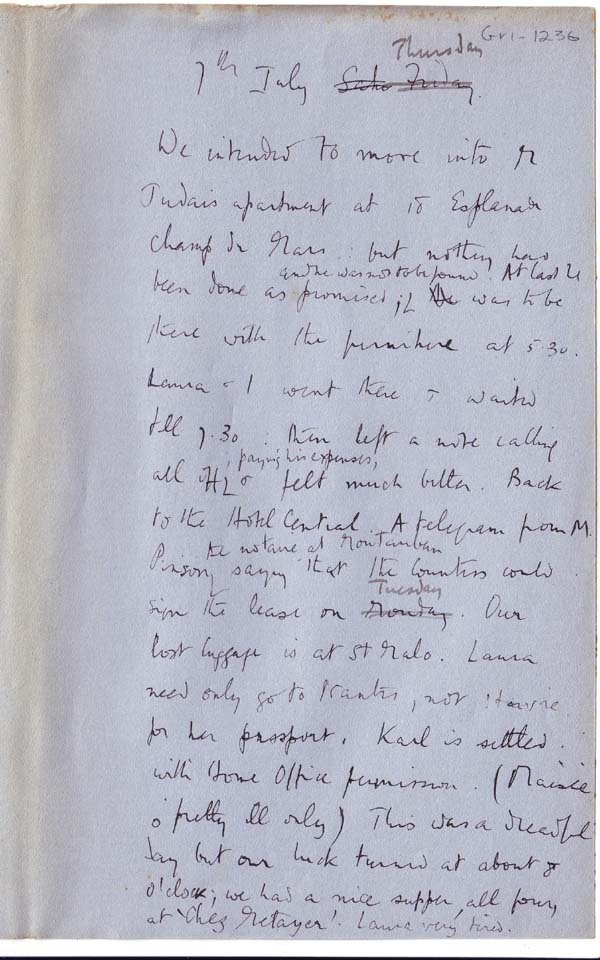 Gr1-1236
Thursday
7th July Friday.
We intended to move into M
Judais apartment at 18 Esplanade
Champ de Mars : but nothing had
and he was not to be found. At last he
been done as promised; was to be
there with the furniture at 5.30.
Laura & I went there & waited
till 7.30 : then left a note calling
, paying his expenses,
all off & felt much better. Back
to the Hotel Central. A telegram from M.
the notaire at Montauban
Pinson, saying that the Countess could
Tuesday
sign the lease on Monday. Our
lost luggage is at St Malo. Laura
need only go to Nantes, not
for her passport. Karl is settled
with Home Office permission. (Maisie
is pretty ill only) This was a dreadful
day but our luck turned at about 8
o'clock; we had a nice supper, all four,
at 'Chez Metayer'. Laura very tired.